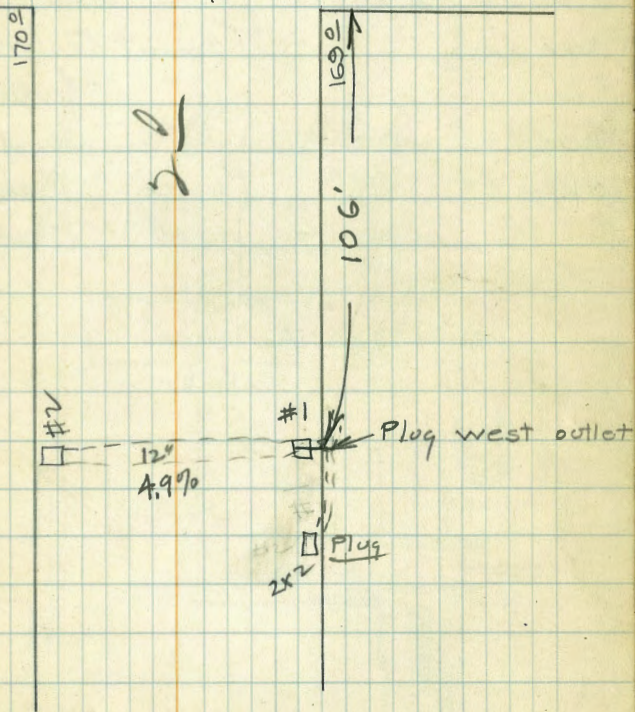 170º
169º
106'
#2
#1
Plug west outlet
12"
4.9%
Plug
2x2